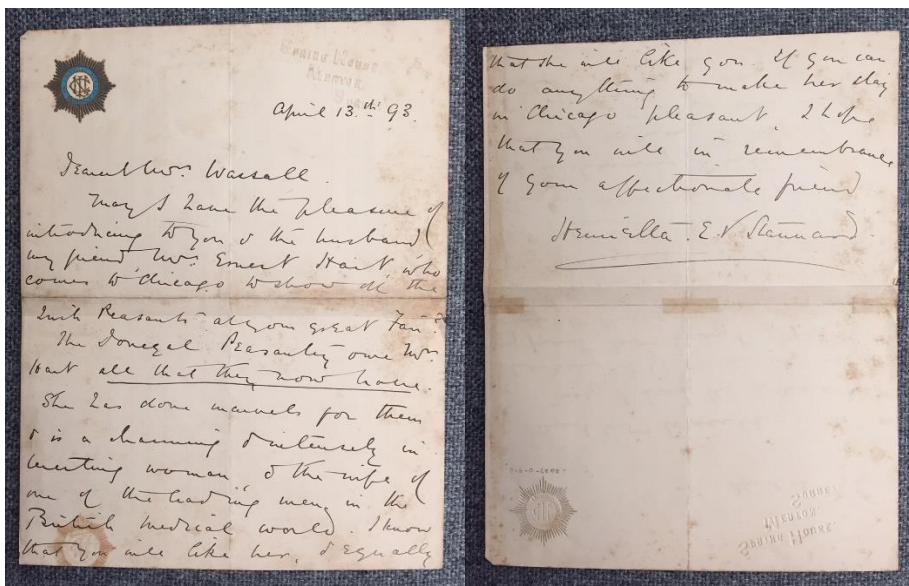 April 13.th 93.
Dearest Mrs. Wassall.
May I have the pleasure of
introducing to you & the husband
my friend Mrs. Ernest Hart, who
comes to Chicago to show off the
Irish Peasants at your great Fair?
The Donegal Peasantry owe Mrs.
Hart all that they now have.
She has done marvels for them
& is a charming & intensely in
teresting woman, & the wife of
one of the leading men in the
British medical world. I know
that you will like her, & equally
that she will like you. If you can
do anything to make her stay
in Chicago pleasant, I hope
that you will in remembrance
of your affectionate friend
Henrietta. E. V Stannard.